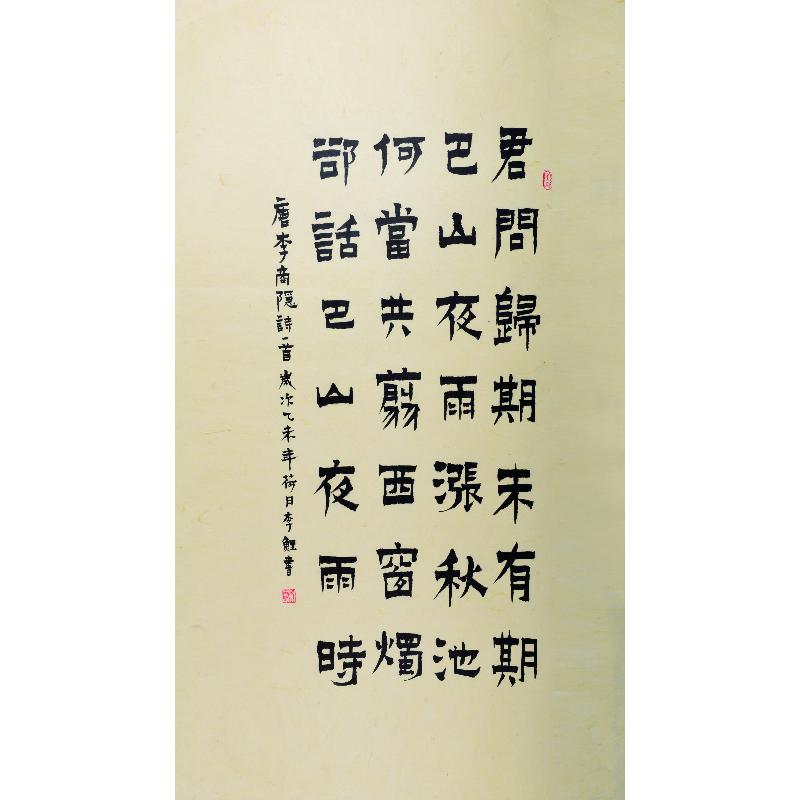 君問歸期未有期
巴山夜雨漲秋池
何當共翦西窗燭
郤話巴山夜雨時
唐李商隱詩一首歲次乙未年荷月李鯉書